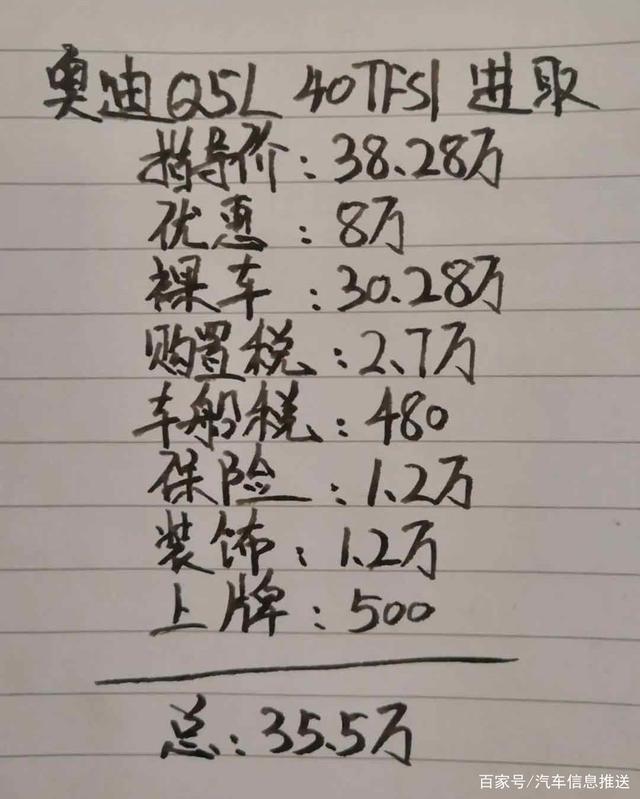 奥迪Q5L 40TFSI 进取
指导价：38.28万
优惠：8万
裸车：30.28万
购置税：2.7万
车船税：480
保险：1.2万
装饰：1.2万
上牌：500
总：35.5万
百家号/汽车信息推送